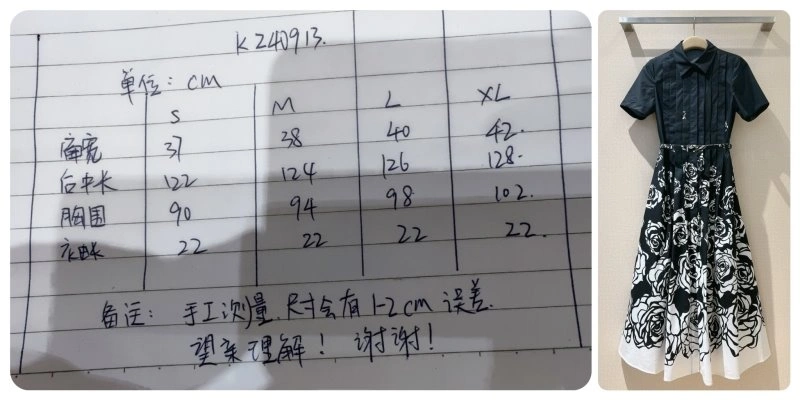 K240913.
单位：cm
S M L XL
肩宽 37 38 40 42.
后中长 122 124 126 128.
胸围 90 94 98 102.
袖长 22 22 22 22.
备注：手工测量.尺寸会有1-2cm误差.
望亲理解！谢谢！